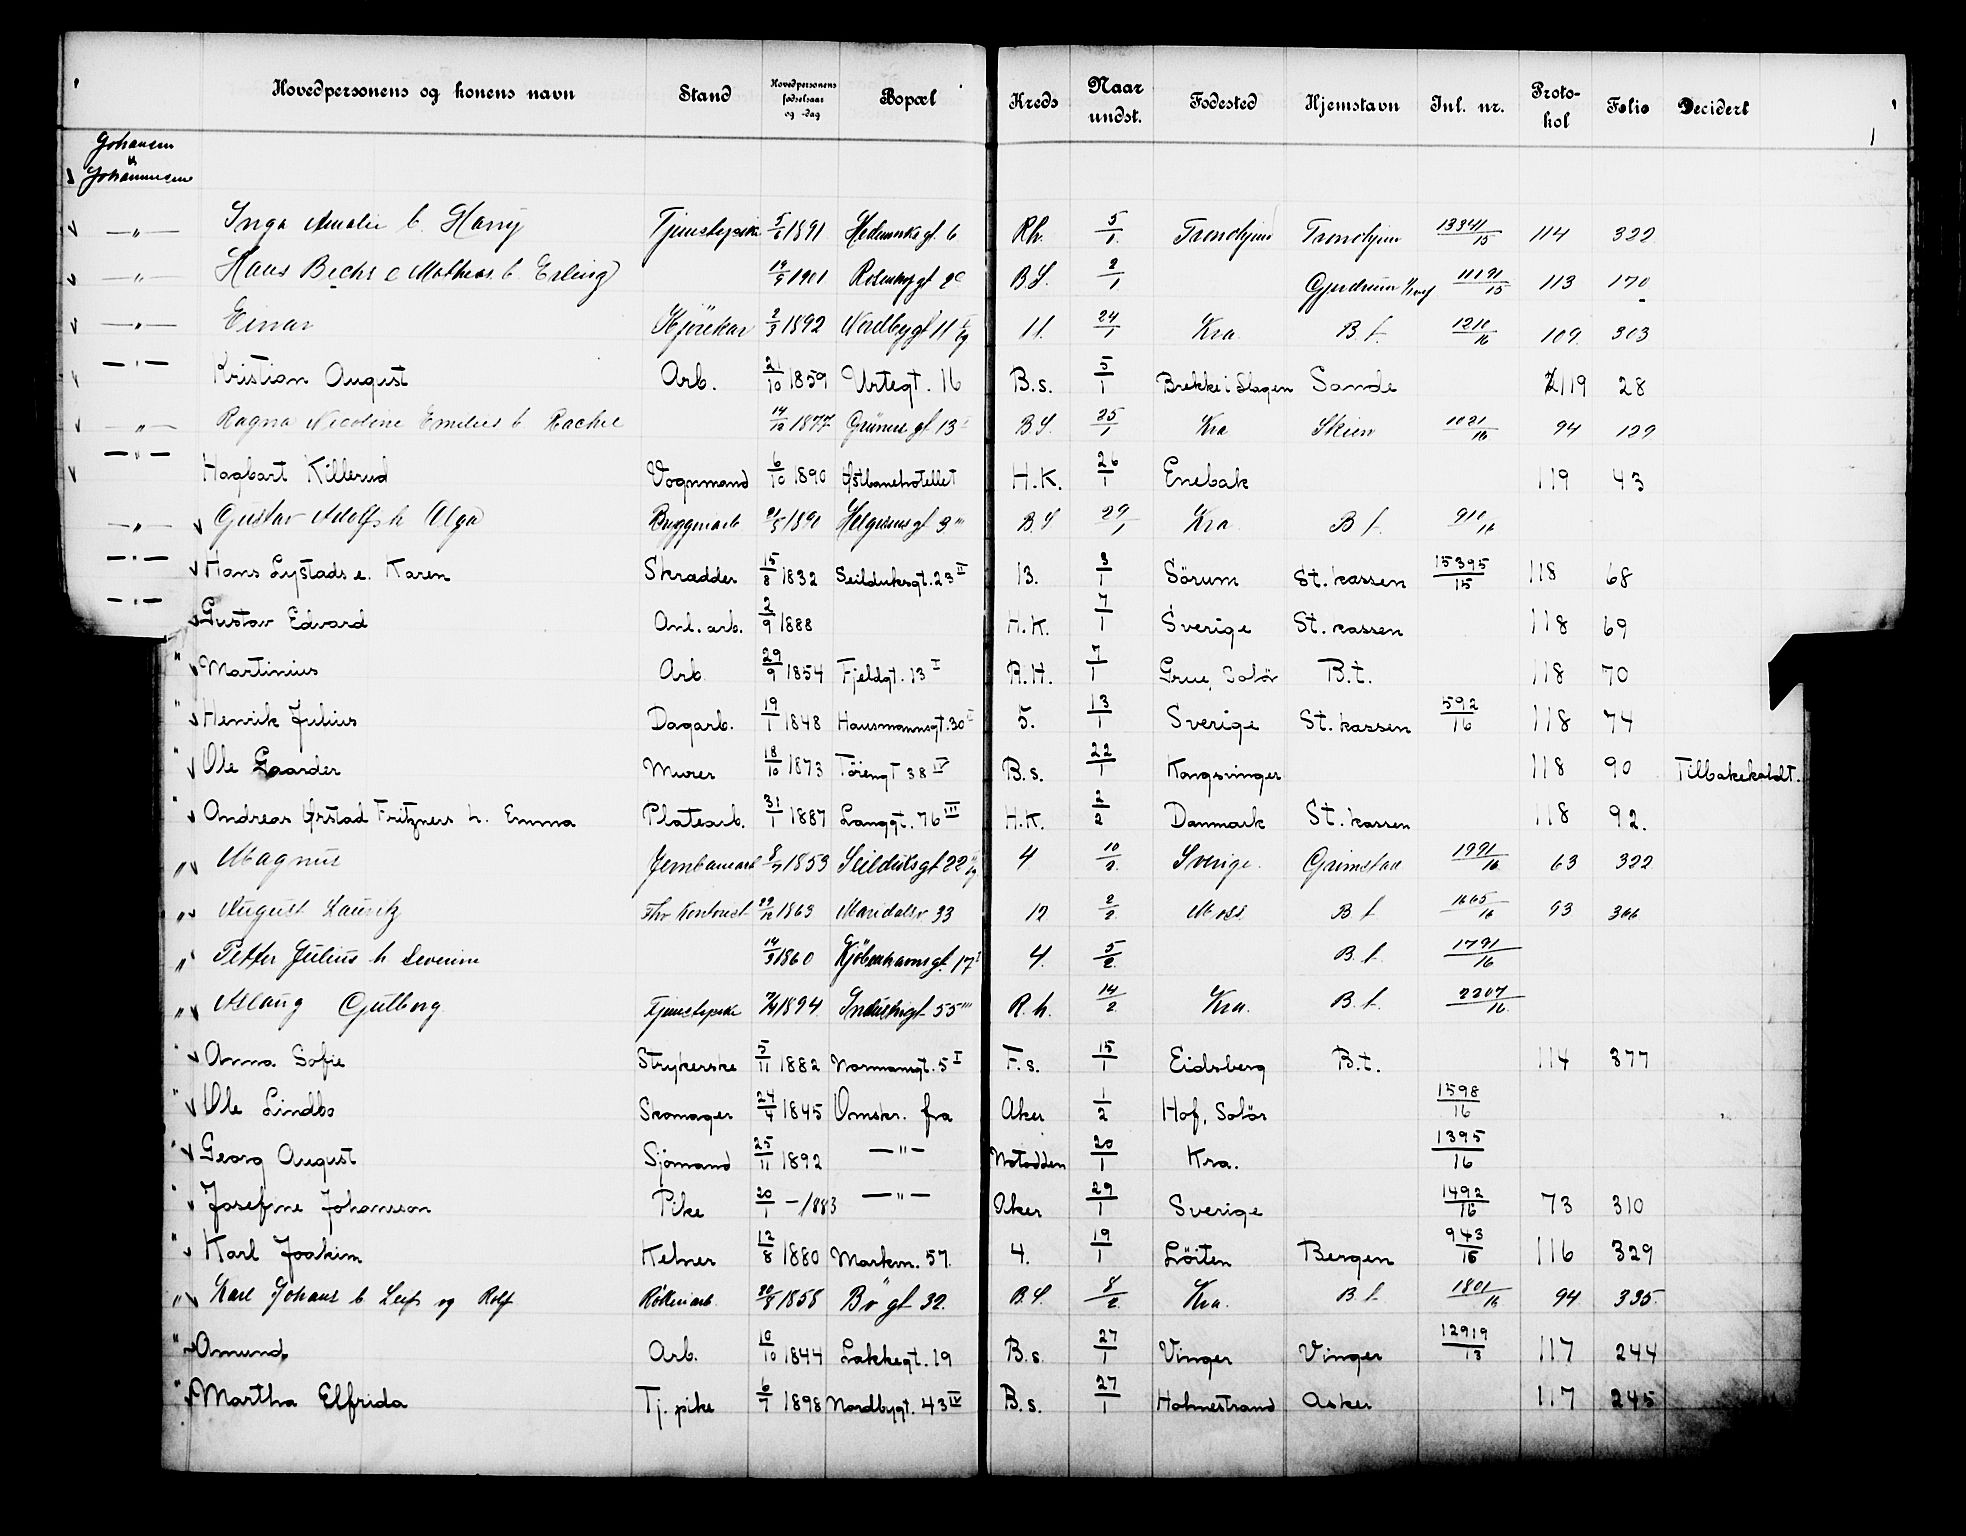 Hovedpersonens og konens navn Stand Hovedpersonens fødselsaar og -dag Bopæl Kreds Naar undst. Fødested Hjemstavn Inl. nr. Proto-kol Folio Decidert
Johansen
&
Johannesen
—"— Inga Amalie b. Harry Tjenestepike 5/6 1891 Hedemarks gt. 6 Rh. 5/1 Trondhjem Trondhjem 13341/15 114 322
—"— Hans Bechs e Mathea b. Erling 19/9 1901 Rosenborg gt 2c B.S. 2/1 Gjerdrum 11191/15 113 170
—"— Einar Kjörekar 2/3 1892 Nordbygt 11 11. 24/1 Kra. B.t. 1210/16 109. 303
—"— Kristian August Arb. 21/10 1859 Urtegt. 16 B.s. 5/1 Brekke i Slagen Sande 119 28
—"— Ragna Nicoline Emilies b Rachel 14/12 1877 Grüners gt 13 B.S. 25/1 Kra Skien 1021/16 94 129
—"— Hagbart Killerud Vognmand 6/10 1890 Østbanehotellet H.K. 26/1 Enebak 119 43
—"— Gustav Adolfs h Olga Bryggeriarb 21/5 1890 Helgesens gt 3''' B.S 29/1 Kra. B t. 910/16
—"— Hans Lystads e. Karen Skrædder 15/8 1832 Seilduksgt. 23 II 13. 3/1 Sörum St. kassen 15395/15 118 68
—"— Gustav Edvard Anl. arb. 2/9 1888 H.K. 7/1 Sverige St. kassen 118 69
" Martinius Arb. 29/9 1854 Fjeldgt. 13 I R.H. 7/1 Grue, Solör B.t. 118 70
" Henrik Julius Dagarb. 19/1 1848 Hausmannsgt. 30 I 5. 13/1 Sverige St. kassen 592/16 118 74
" Ole Gaarder Murer 18/10 1873 Töiengt 38 IV B.s. 22/1 Kongsvinger 118 90 Tilbakekaldt.
" Andreas Ørstad Fritzners h. Emma Platearb. 31/1 1887 Langgt. 76 III H.K. 2/2 Danmark St. kassen 118 92.
" Magnus Jernbanearb 8/7 1853 Seilduksgt 22 4 10/2. Sverige. Grimstad 1991/16 63 322
" August Lauritz Fhv Kontorist 29/12 1863 Maridalsv 33 12 2/2. Moss. B t. 1665/16 93 366
" Petter Julius h Severine 14/3 1860 Kjöbenhavnsgt. 17 I 4. 5/2. B. t. 1791/16
" Aslaug Gutborg Tjenestepike 1894 Industrigt 55''' R.h. 14/2 Kra. B. t. 2207/16.
" Anna Sofie Strykerske 5/11 1882 Normannsgt. 5 I F.s. 15/1 Eidsberg B.t. 114 377
" Ole Lindbo Skomager 24/4 1845 Omskr. fra Aker 1/2 Hof, Solör 1598/16
" Georg August Sjömand 25/11 1892 —"— Notodden 20/1 Kra. 1395/16
" Josefine Johansson Pike 20/1 – 1883 —"— Aker 29/1 Sverige 1492/16 73 310
" Karl Joakim Kelner 12/8 1880 Markvn. 57. 4. 19/1 Löiten Bergen 943/16 116 329
" Karl Johans b Leif og Rolf Rökeriarb 20/8 1858 Bö gt 32. B.S. 8/2. Kra. B t. 1801/16 94 335.
" Amund Arb. 10/10 1844 Lakkegt. 19 B.s. 27/1 Vinger Vinger 12919/13 117 244
" Martha Elfrida Tj. pike 6/7 1898 Nordbygt. 43 IV B.s. 27/1 Holmestrand Asker 117 245